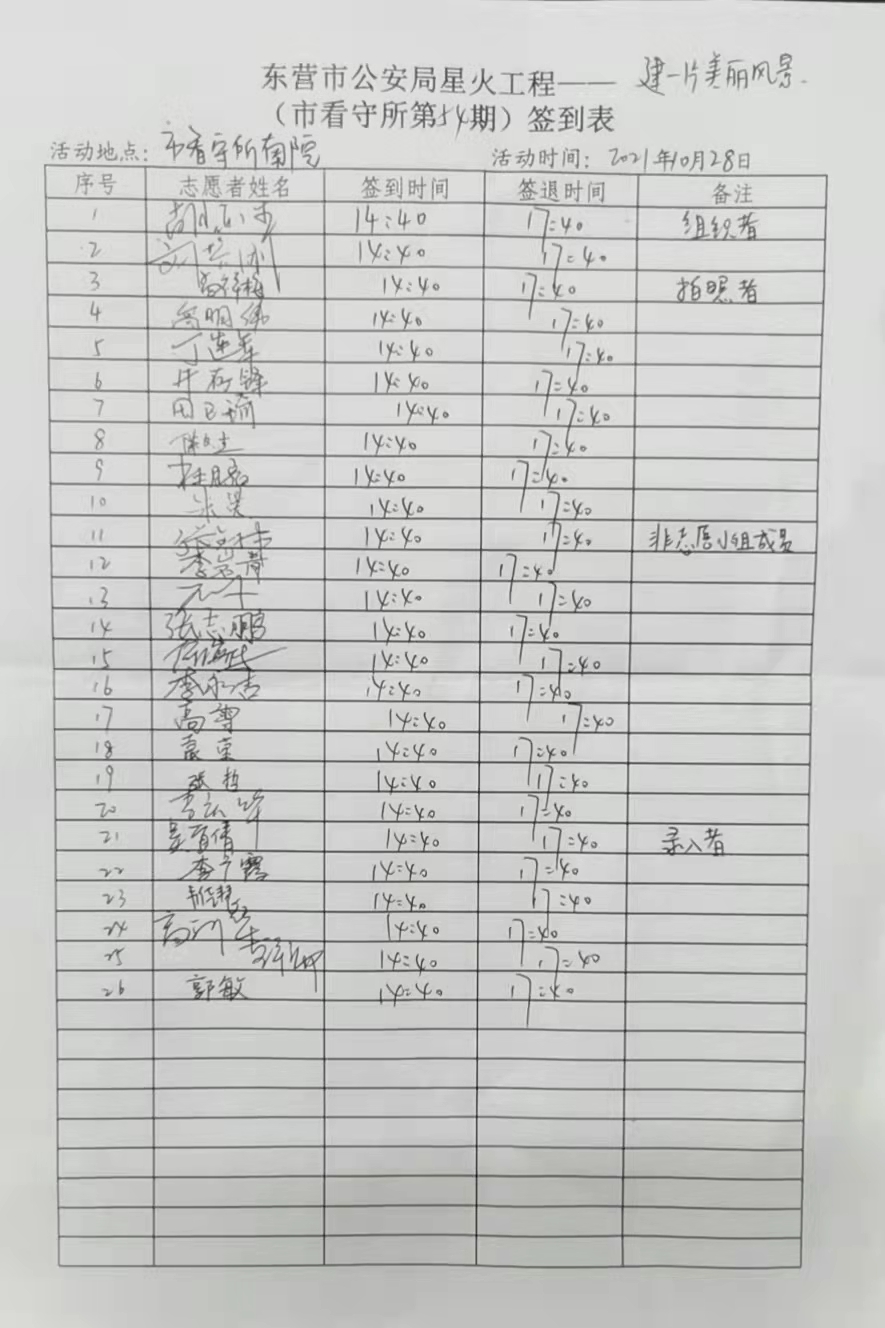 东营市公安局星火工程——建一片美丽风景.
（市看守所第54期）签到表
活动地点：市看守所南院 活动时间：2021年10月28日
序号 志愿者姓名 签到时间 签退时间 备注
1 14:40 17:40 组织者
2 14:40 17:40
3 14:40 17:40 拍照者
4 14:40 17:40
5 丁连军 14:40 17:40
6 14:40 17:40
7 14:40 17:40
8 14:40 17:40
9 14:40 17:40
10 14:40 17:40
11 14:40 17:40 非志愿小组成员
12 14:40 17:40
13 14:40 17:40
14 张志鹏 14:40 17:40
15 14:40 17:40
16 李永洁 14:40 17:40
17 高尊 14:40 17:40
18 14:40 17:40
19 张哲 14:40 17:40
20 14:40 17:40
21 14:40 17:40 录入者
22 14:40 17:40
23 14:40 17:40
24 14:40 17:40
25 14:40 17:40
26 郭敏 14:40 17:40